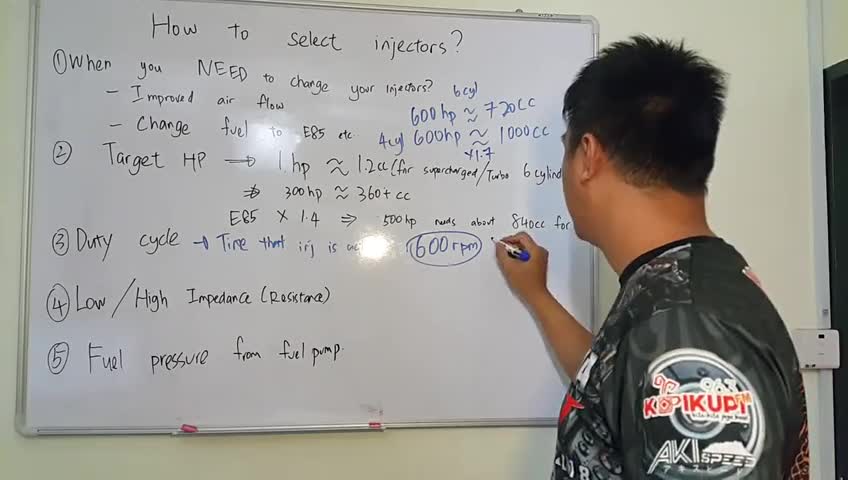 How to select injectors?
① When you NEED to change your injectors?
- Improved air flow
- Change fuel to E85 etc.
6cyl
600hp ≈ 720cc
4cyl 600hp ≈ 1000cc
x1.7
② Target HP → 1 hp ≈ 1.2cc (for supercharged/Turbo 6 cylind
⇒ 300hp ≈ 360+ cc
E85 X 1.4 ⇒ 500hp needs about 840cc for
③ Duty cycle → Time that inj is 600rpm
④ Low/High Impedance (Resistance)
⑤ Fuel pressure from fuel pump.
96.3
KOPIKUPI FM
AKI SPEED